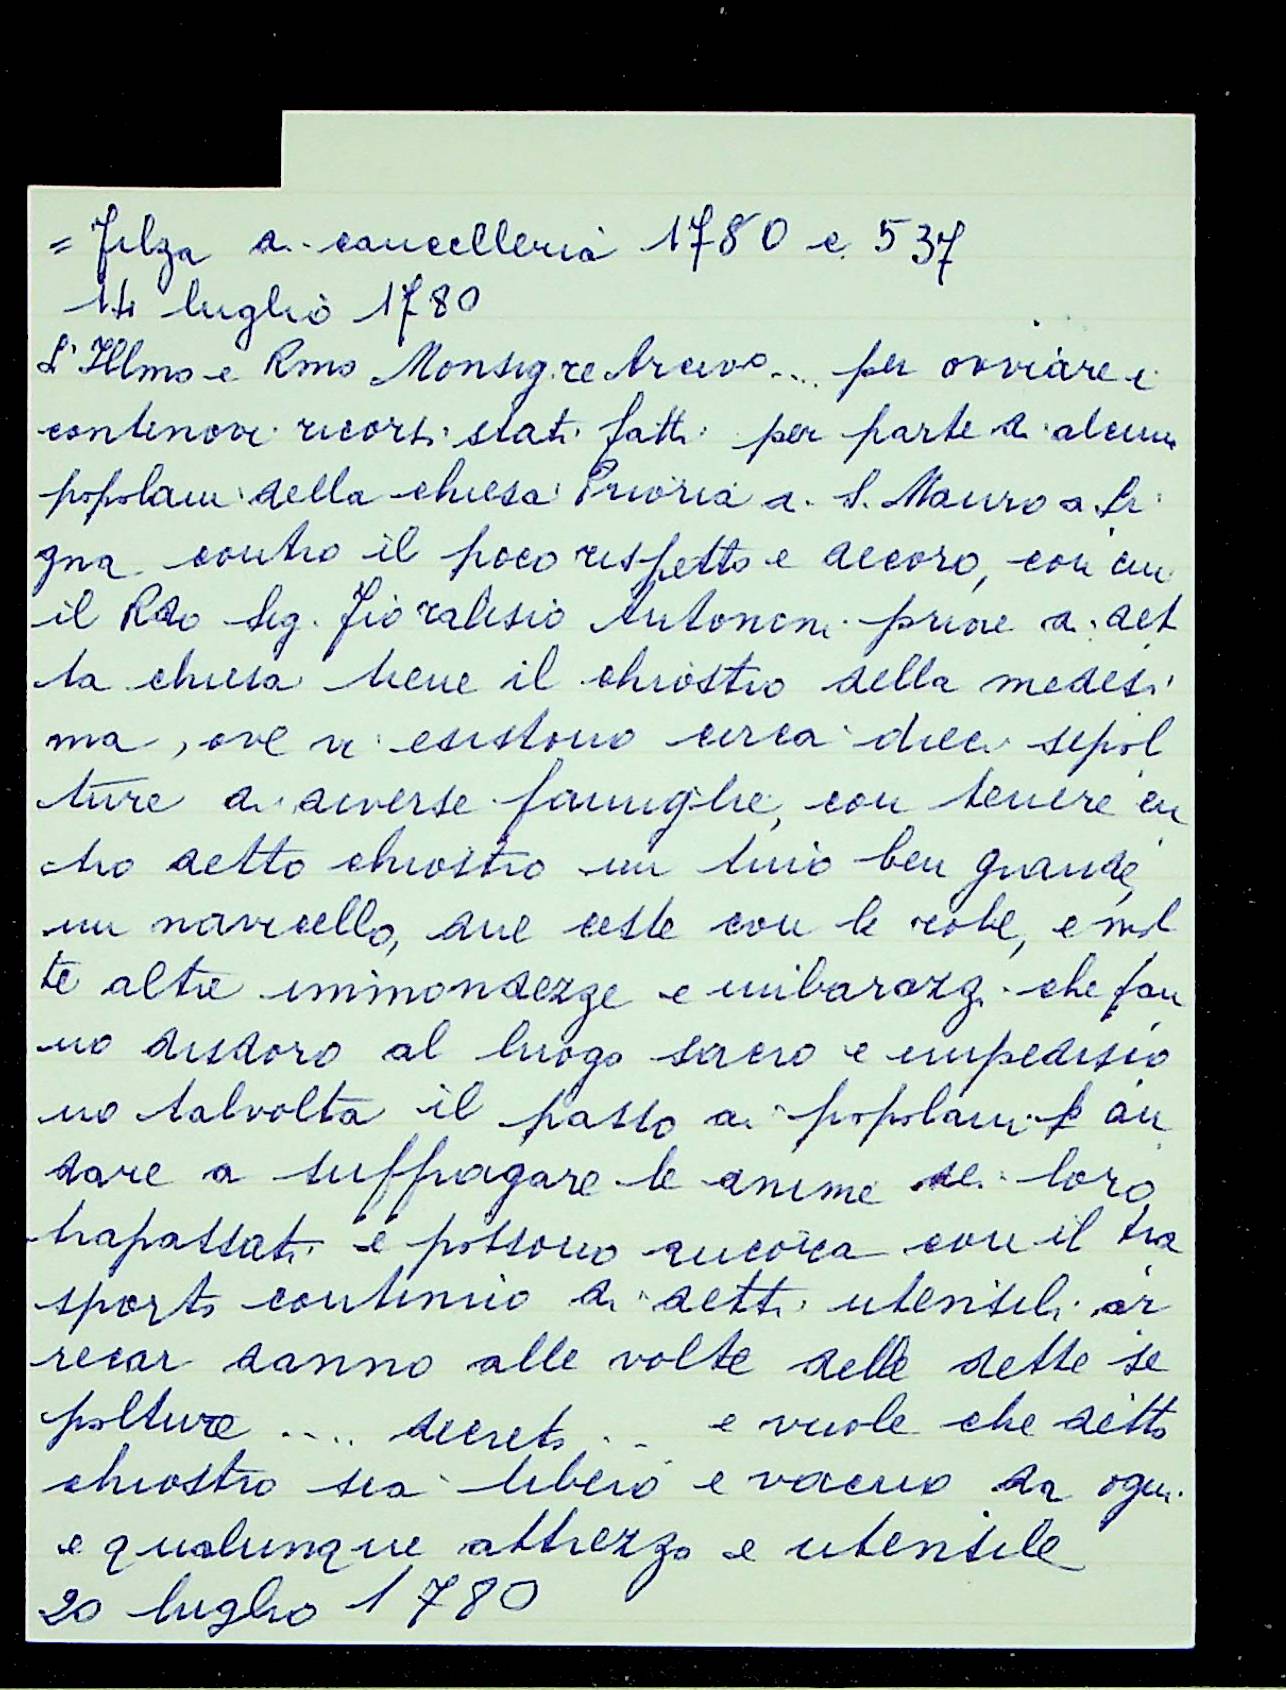 = Filza di cancelleria 1780 c. 537
14 luglio 1780
L'Illmo e Rmo Monsig.re Arcivo.... per ovviare i
continovi ricorsi stati fatti per parte di alcuni
popolani della chiesa Prioria di S. Mauro a Si
gna contro il poco rispetto e decoro, con cui
il Rdo Sig. Antonini priore di det
ta chiesa tiene il chiostro della medesi
ma, ove vi esistono circa dieci sepol
ture di diverse famiglie, con tenere en
tro detto chiostro un tino ben grande,
un navicello, due ceste con le robe, e mol
te altre immondezze e imbarazzi che fan
no disdoro al luogo sacro e impedisco
no talvolta il passo ai popolani p an
dare a suffragare le anime dei loro
trapassati e possono ancora con il tra
sporto continuo di detti utensili ar
recar danno alle volte delle dette se
polture .... decreto .. e vuole che detto
chiostro sia libero e vacuo da ogni
e qualunque attrezzo e utensile
20 luglio 1780